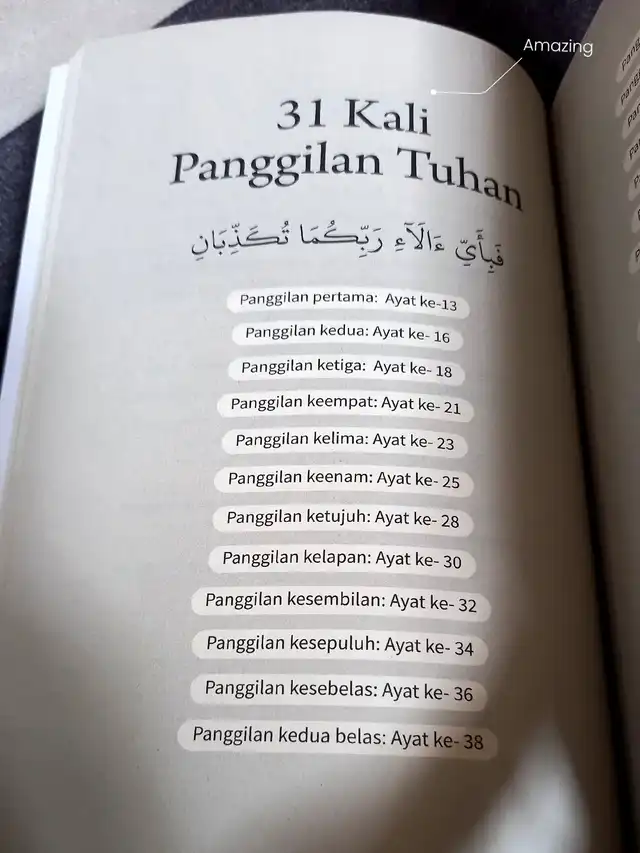 Amazing
31 Kali
Panggilan Tuhan
فَبِأَيِّ ءَالَآءِ رَبِّكُمَا تُكَذِّبَانِ
Panggilan pertama: Ayat ke-13
Panggilan kedua: Ayat ke- 16
Panggilan ketiga: Ayat ke- 18
Panggilan keempat: Ayat ke- 21
Panggilan kelima: Ayat ke- 23
Panggilan keenam: Ayat ke- 25
Panggilan ketujuh: Ayat ke- 28
Panggilan kelapan: Ayat ke- 30
Panggilan kesembilan: Ayat ke- 32
Panggilan kesepuluh: Ayat ke- 34
Panggilan kesebelas: Ayat ke- 36
Panggilan kedua belas: Ayat ke- 38